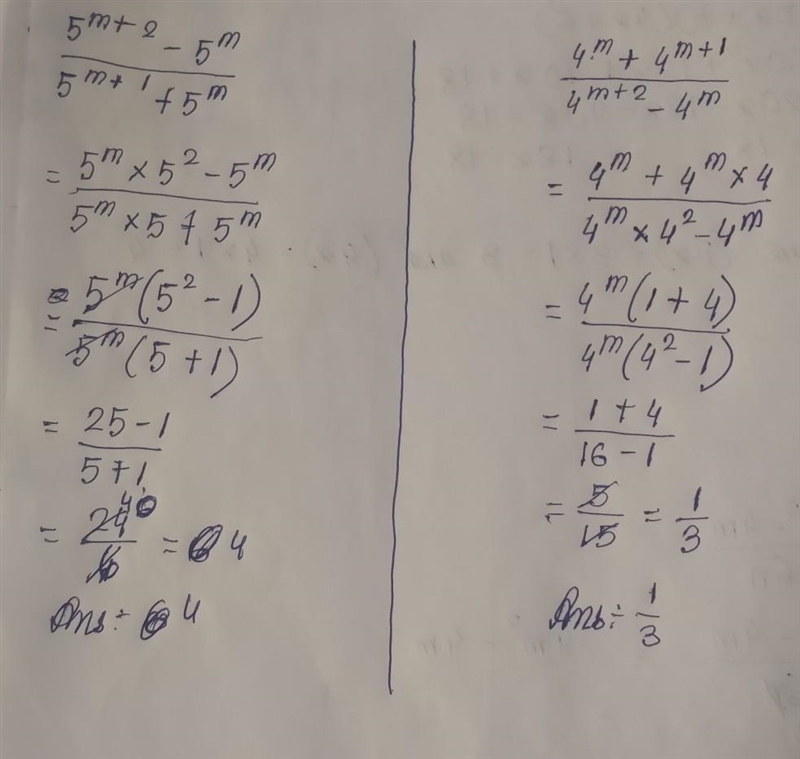 5^{m+2} - 5^m
5^{m+1} + 5^m
= 5^m × 5^2 - 5^m
5^m × 5 + 5^m
= 5^m (5^2 - 1)
5^m (5 + 1)
= 25 - 1
5 + 1
= 24 4
6 = 4
Ans÷ 4
4^m + 4^{m+1}
4^{m+2} - 4^m
= 4^m + 4^m × 4
4^m × 4^2 - 4^m
= 4^m (1 + 4)
4^m (4^2 - 1)
= 1 + 4
16 - 1
= 5 = 1
15 3
Ans÷ 1
3